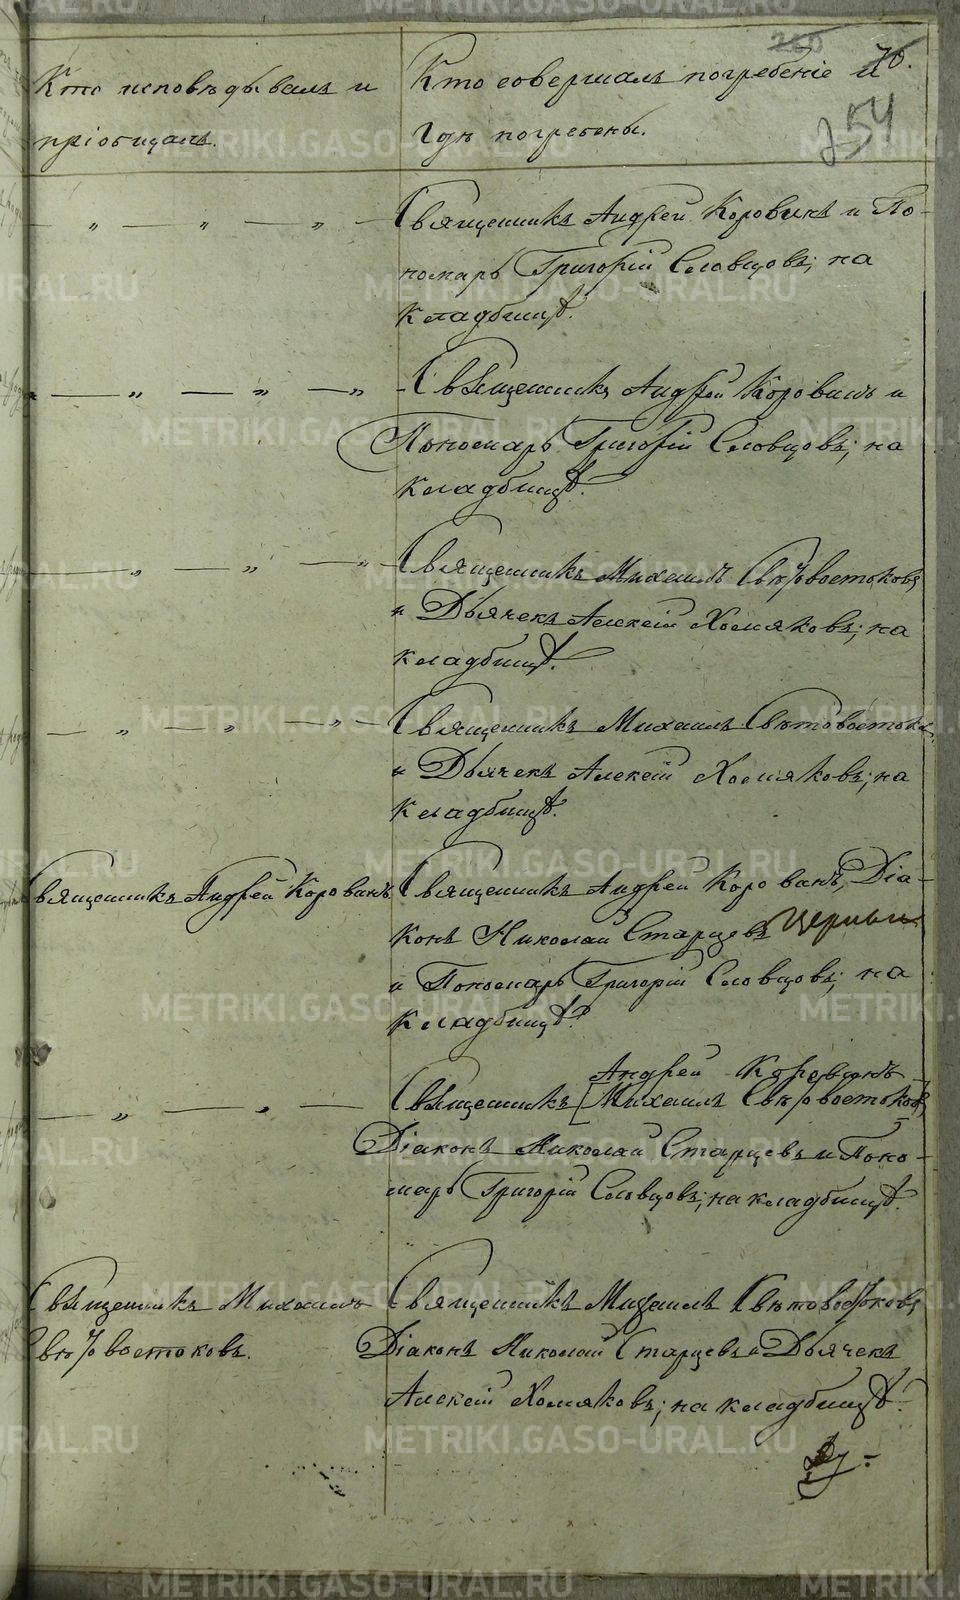 260 70.
254
Кто исповѣдывалъ и
пріобщалъ.
Кто совершалъ погребеніе и
гдѣ погребены.
— „ — „ — „ — Священникъ Андрей Коровинъ и По-
номарь Григорій Словцовъ; на
кладбищѣ.
— „ — „ — „ — Священникъ Андрей Коровинъ и
Пономарь Григорій Словцовъ; на
кладбищѣ.
— „ — „ — „ — Священникъ Михаилъ Свѣтовостоковъ
и Дьячекъ Алексій Хомяковъ; на
кладбищѣ.
— „ — „ — „ — Священникъ Михаилъ Свѣтовостоков
и Дьячекъ Алексій Хомяковъ; на
кладбищѣ.
Священникъ Андрей Коровинъ. Священникъ Андрей Коровинъ, Діа-
конъ Николай Старцевъ
и Пономарь Григорій Словцовъ; на
кладбищѣ.
Андрей Коровинъ
— „ — „ — Священникъ [Михаилъ Свѣтовостоковъ]
Діаконъ Николай Старцевъ и Поно-
марь Григорій Словцовъ; на кладбищѣ.
Священникъ Михаилъ Священникъ Михаилъ Свѣтовостоковъ
Свѣтовостоковъ. Діаконъ Николай Старцевъ и Дьячекъ
Алексій Хомяковъ; на кладбищѣ.
METRIKI.GASO-URAL.RU